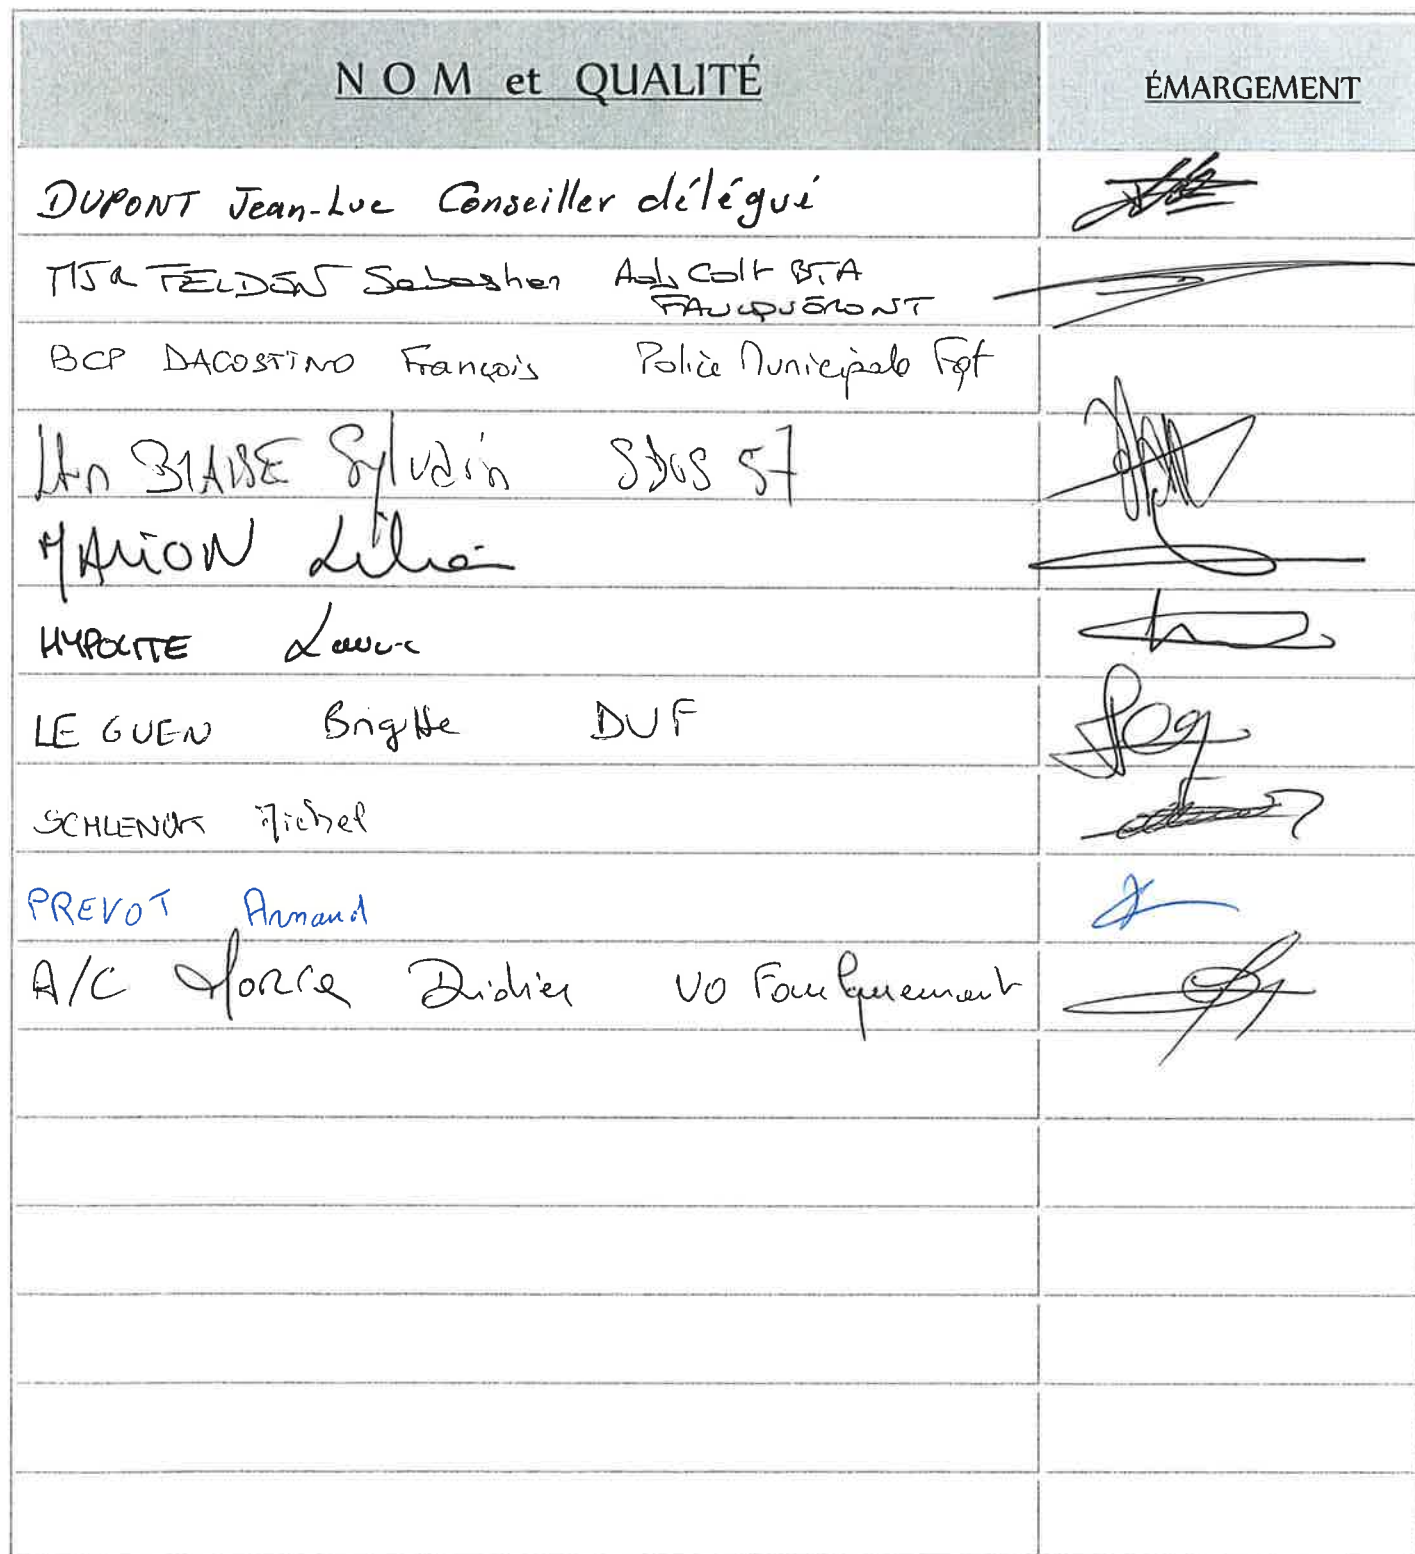 N O M et QUALITÉ
ÉMARGEMENT
DUPONT Jean-Luc Conseiller délégué
MJR FELDEN Sebastien Adj Cdt BTA
FAULQUEMONT
BCP DAGOSTINO François Police Municipale Fqt
Ltn BLAISE Sylvain SDIS 57
MARION
HYPOLITE Laura
LE GUEN Brigitte DUF
SCHLENCK Michel
PREVOT Arnaud
A/C Didier VO Faulquemont